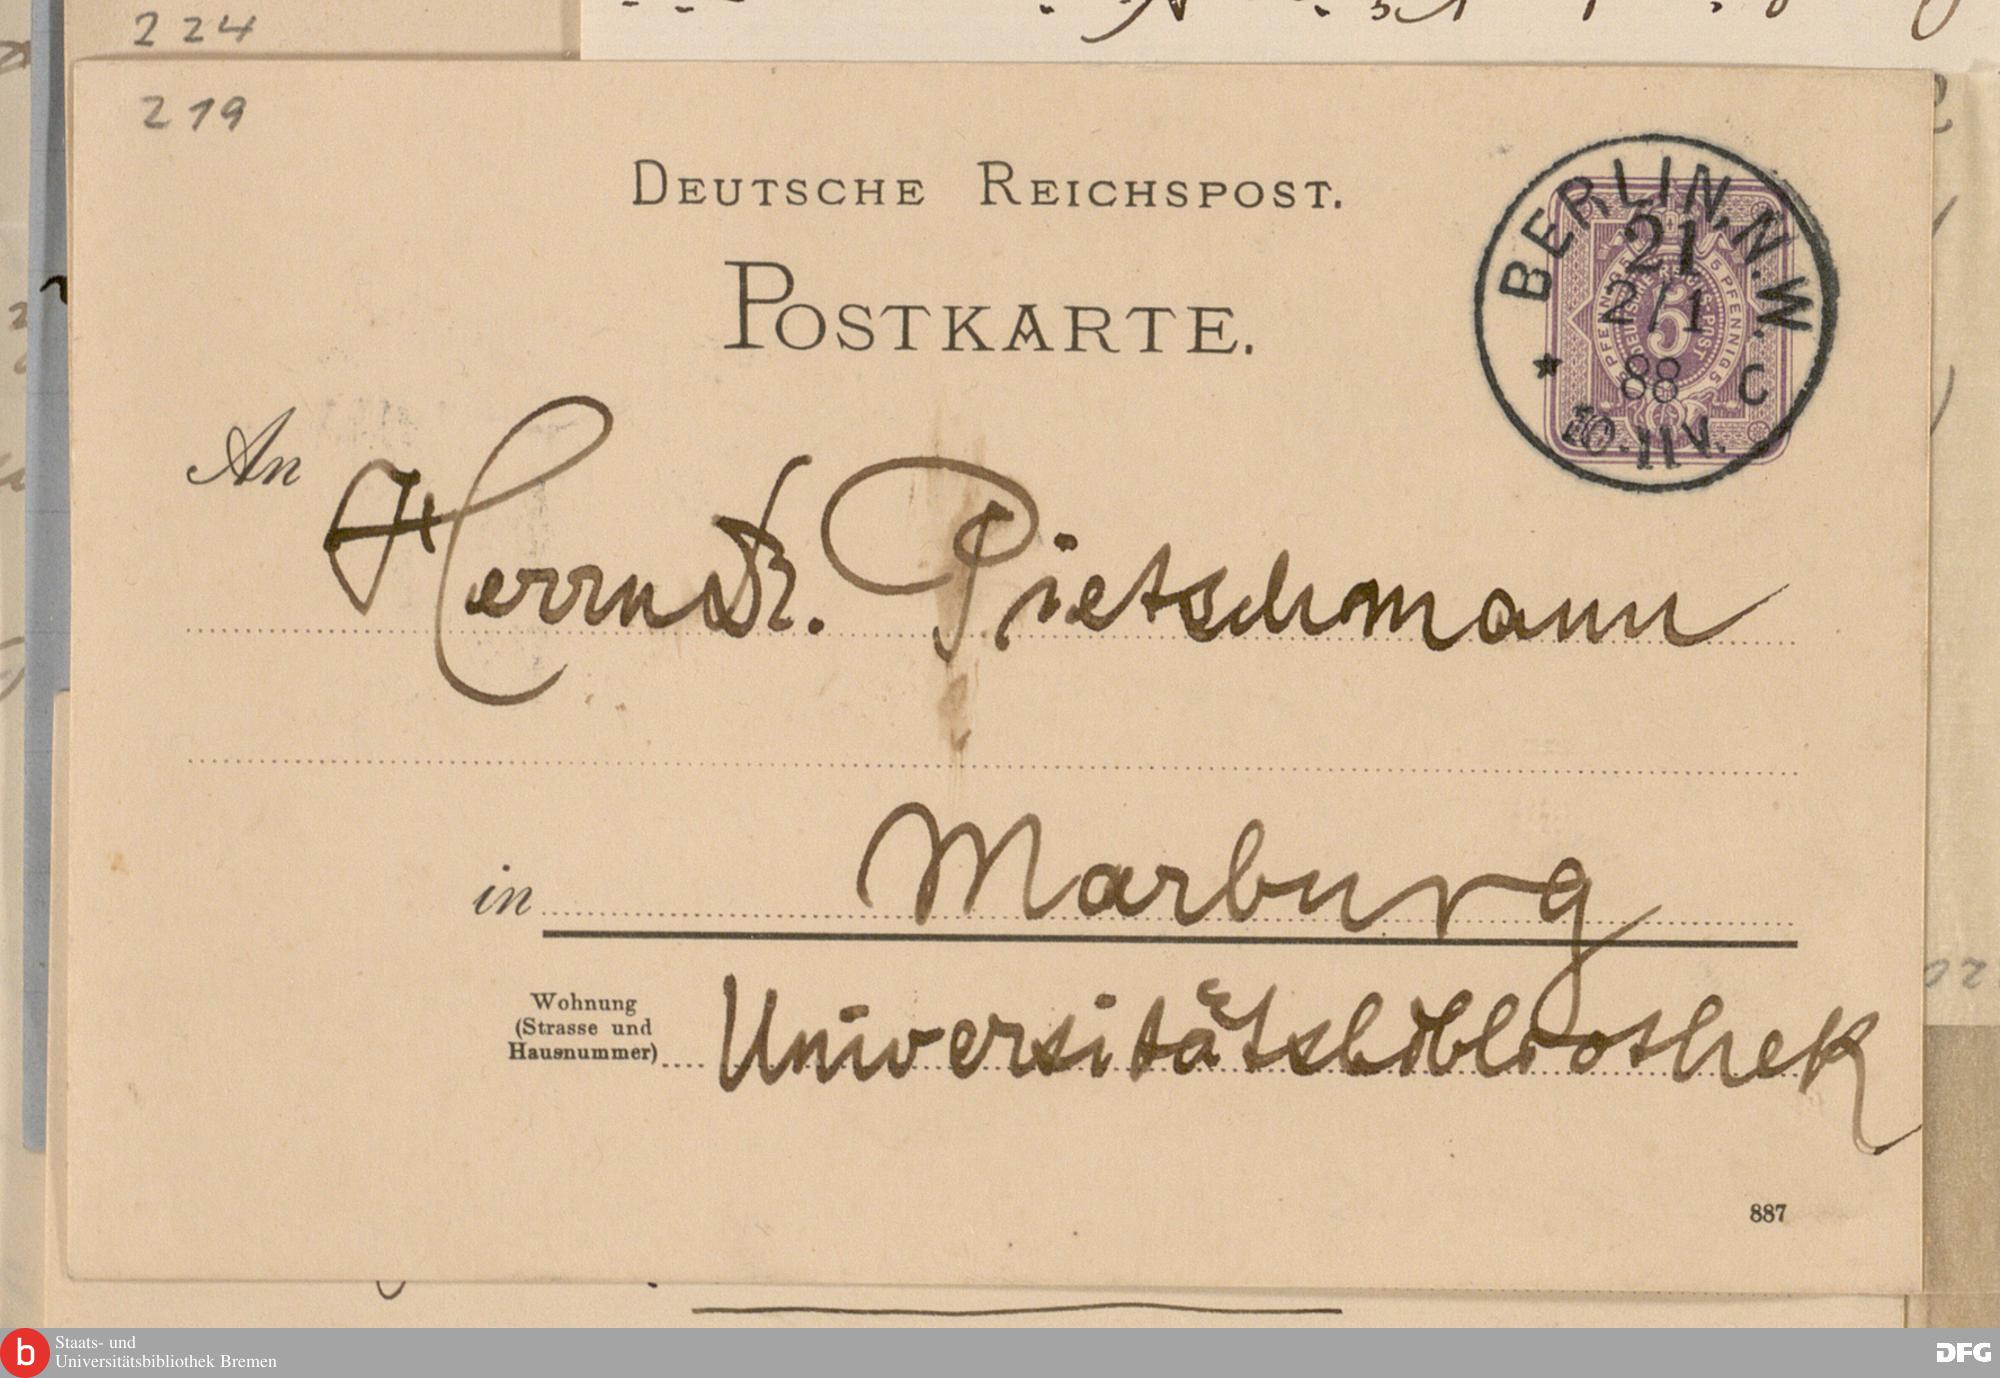 224
219
DEUTSCHE REICHSPOST.
POSTKARTE.
BERLIN, N.W.
21
2/1
88 C
10-11 V.
5 PFENNIG 5
DEUTSCHE REICHS-POST
5
5 PFENNIG 5
An Herrn Dr. Pietschmann
in Marburg
Wohnung
(Strasse und
Hausnummer) Universitätsbibliothek
887
b Staats- und
Universitätsbibliothek Bremen
DFG